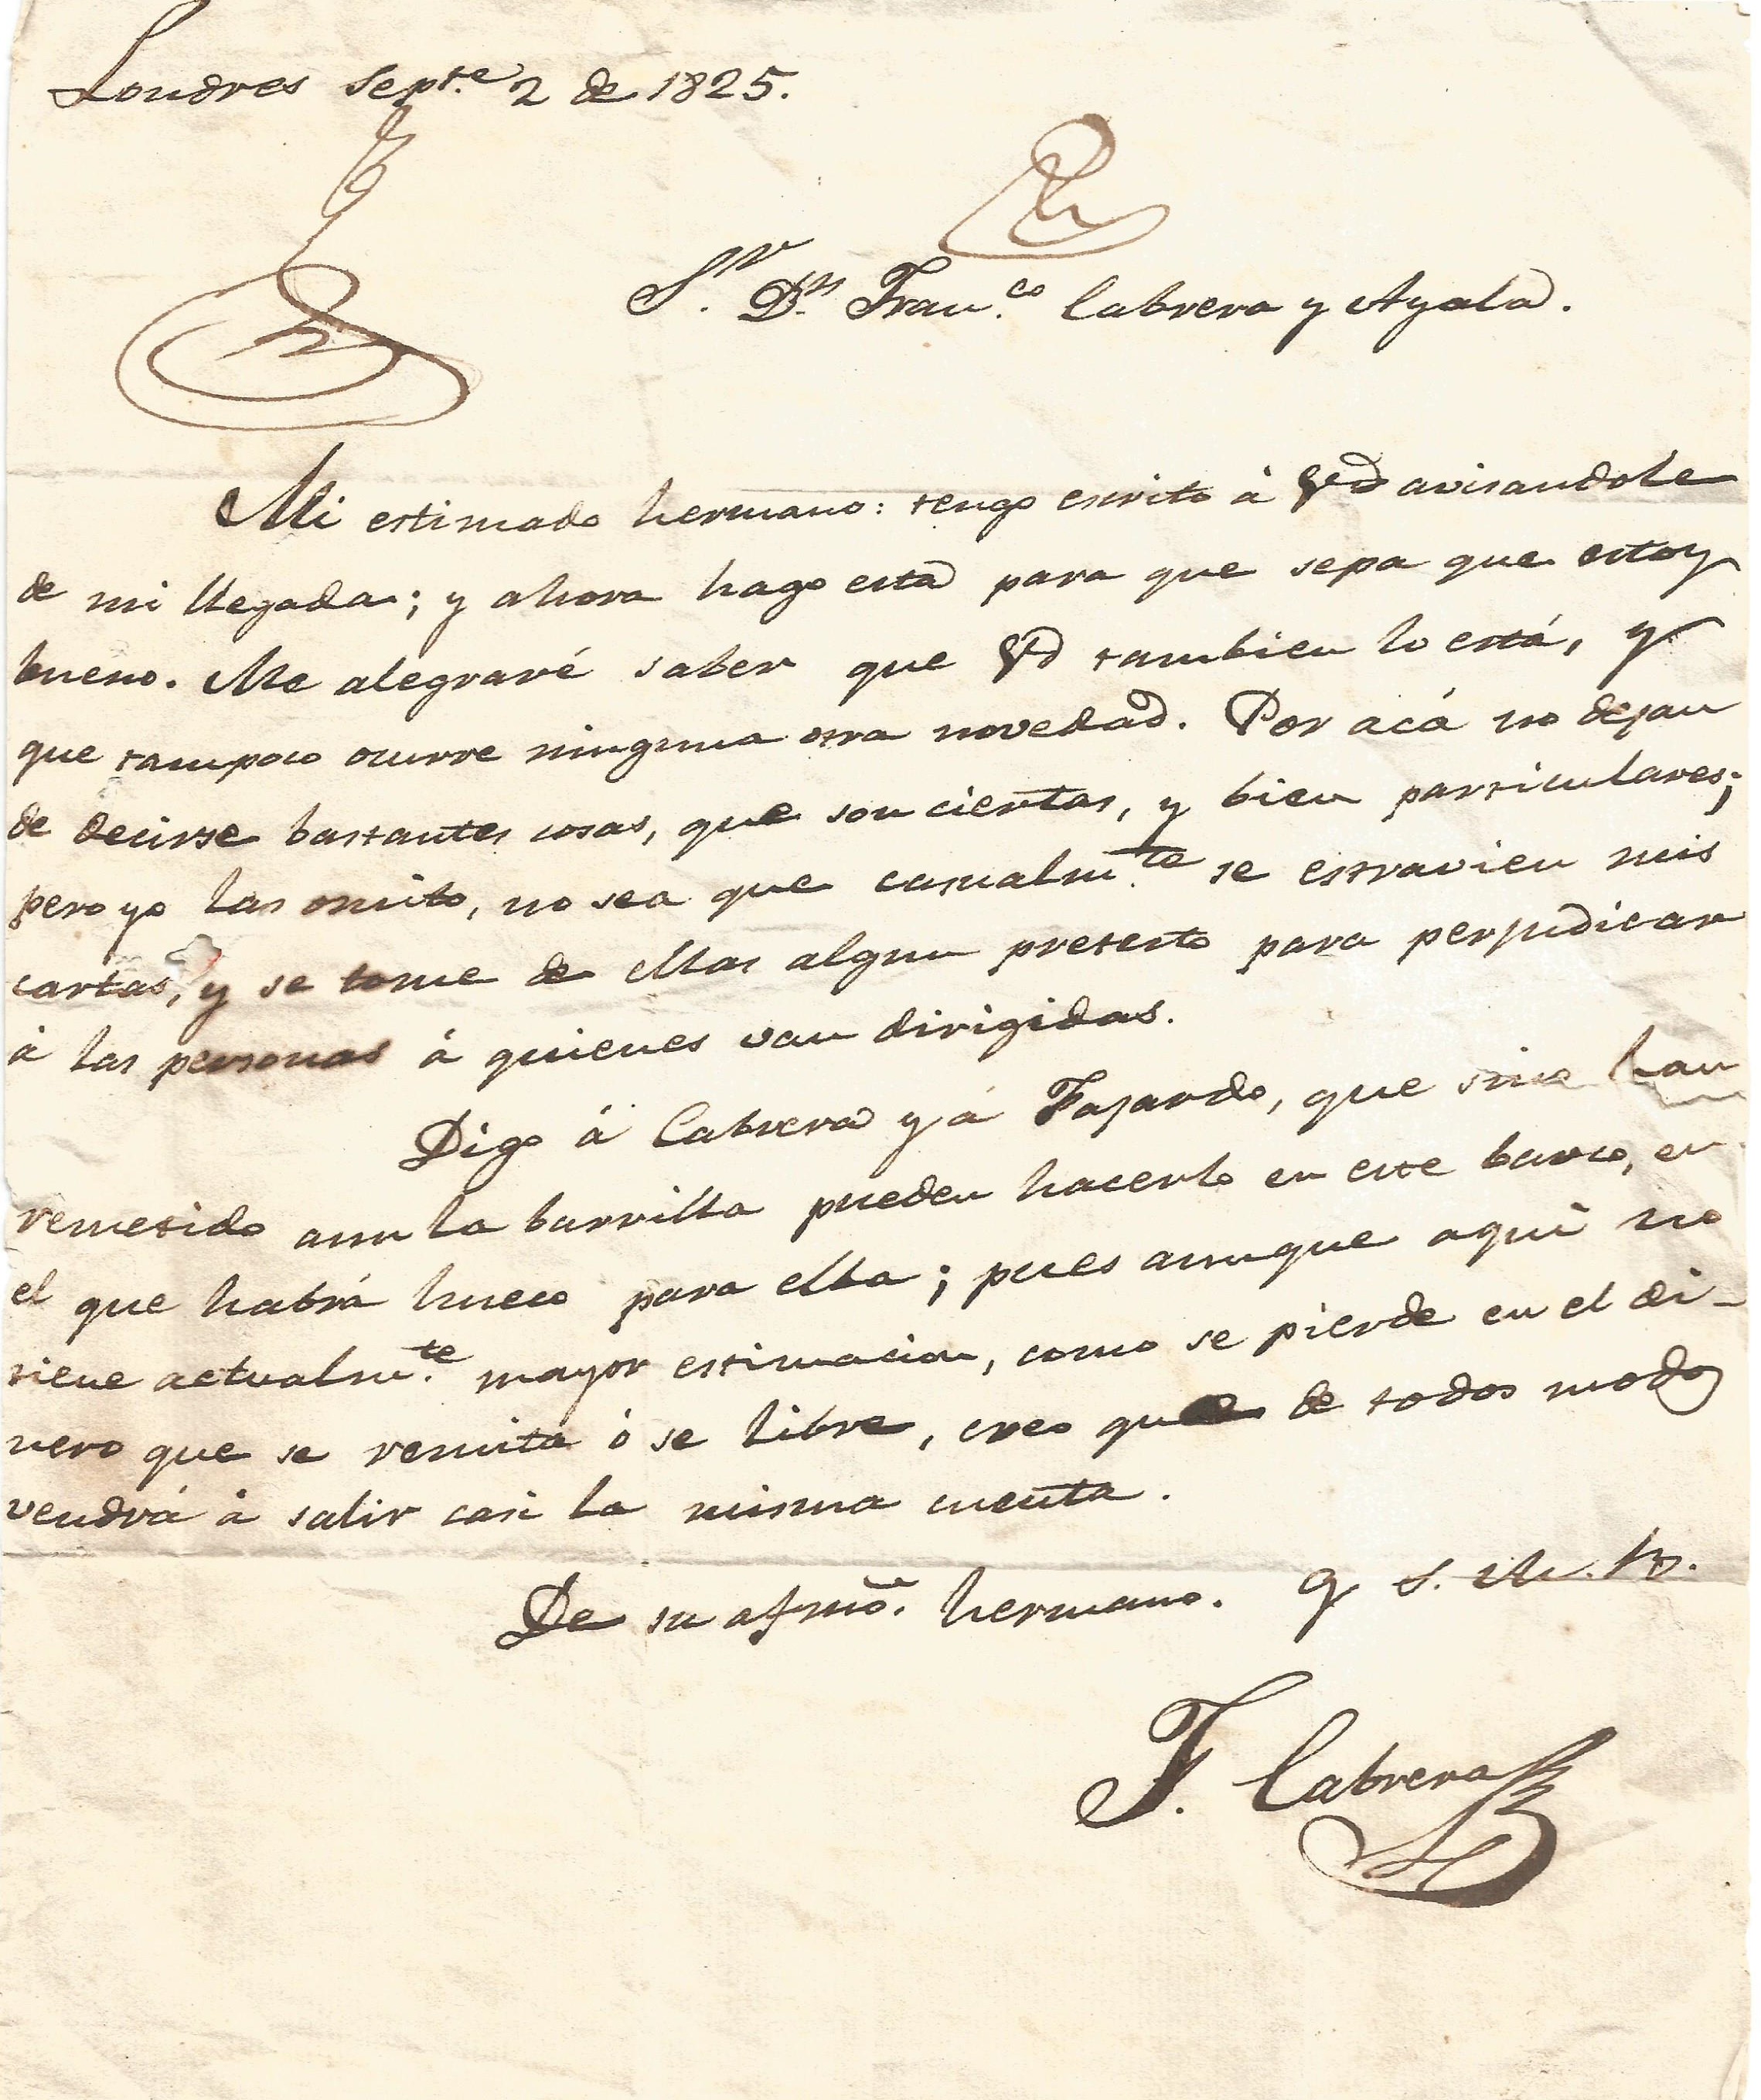 Londres Septe. 2 de 1825.
Sr. Dn. Franco. Cabrera y Ayala.
Mi estimado hermano: tengo escrito á Vd avisandole
de mi llegada; y ahora hago esta para que sepa que estoy
bueno. Me alegraré saber que Vd tambien lo está, y
que tampoco ocurre ninguna otra novedad. Por acá no dejan
de decirse bastantes cosas, que son ciertas, y bien particulares;
pero yo las omito, no sea que casualmte. se estravien mis
cartas, y se tome de ellas algun pretesto para perjudicar
á las personas á quienes van dirigidas.
Digo á Cabrera y á Fajardo, que sino han
remetido aun la barrilla pueden hacerlo en este barco, en
el que habrá hueco para ella; pues aunque aquí no
tiene actualmte. mayor estimacion, como se pierde en el di-
nero que se remita ó se libre, creo que de todos modos
vendrá á salir casi la misma cuenta.
De su afmō. hermano. q S. M. B.
F. Cabrera